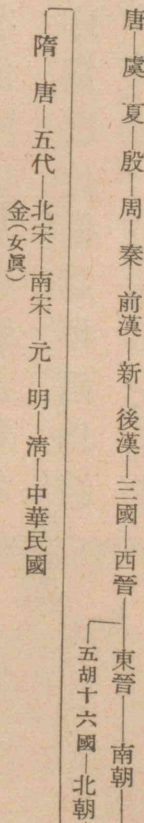 唐―虞―夏―殷―周―秦―前漢―新―後漢―三國―西晉―東晉―南朝
五胡十六國―北朝
隋―唐―五代―北宋―南宋―元―明―清―中華民國
金(女眞)